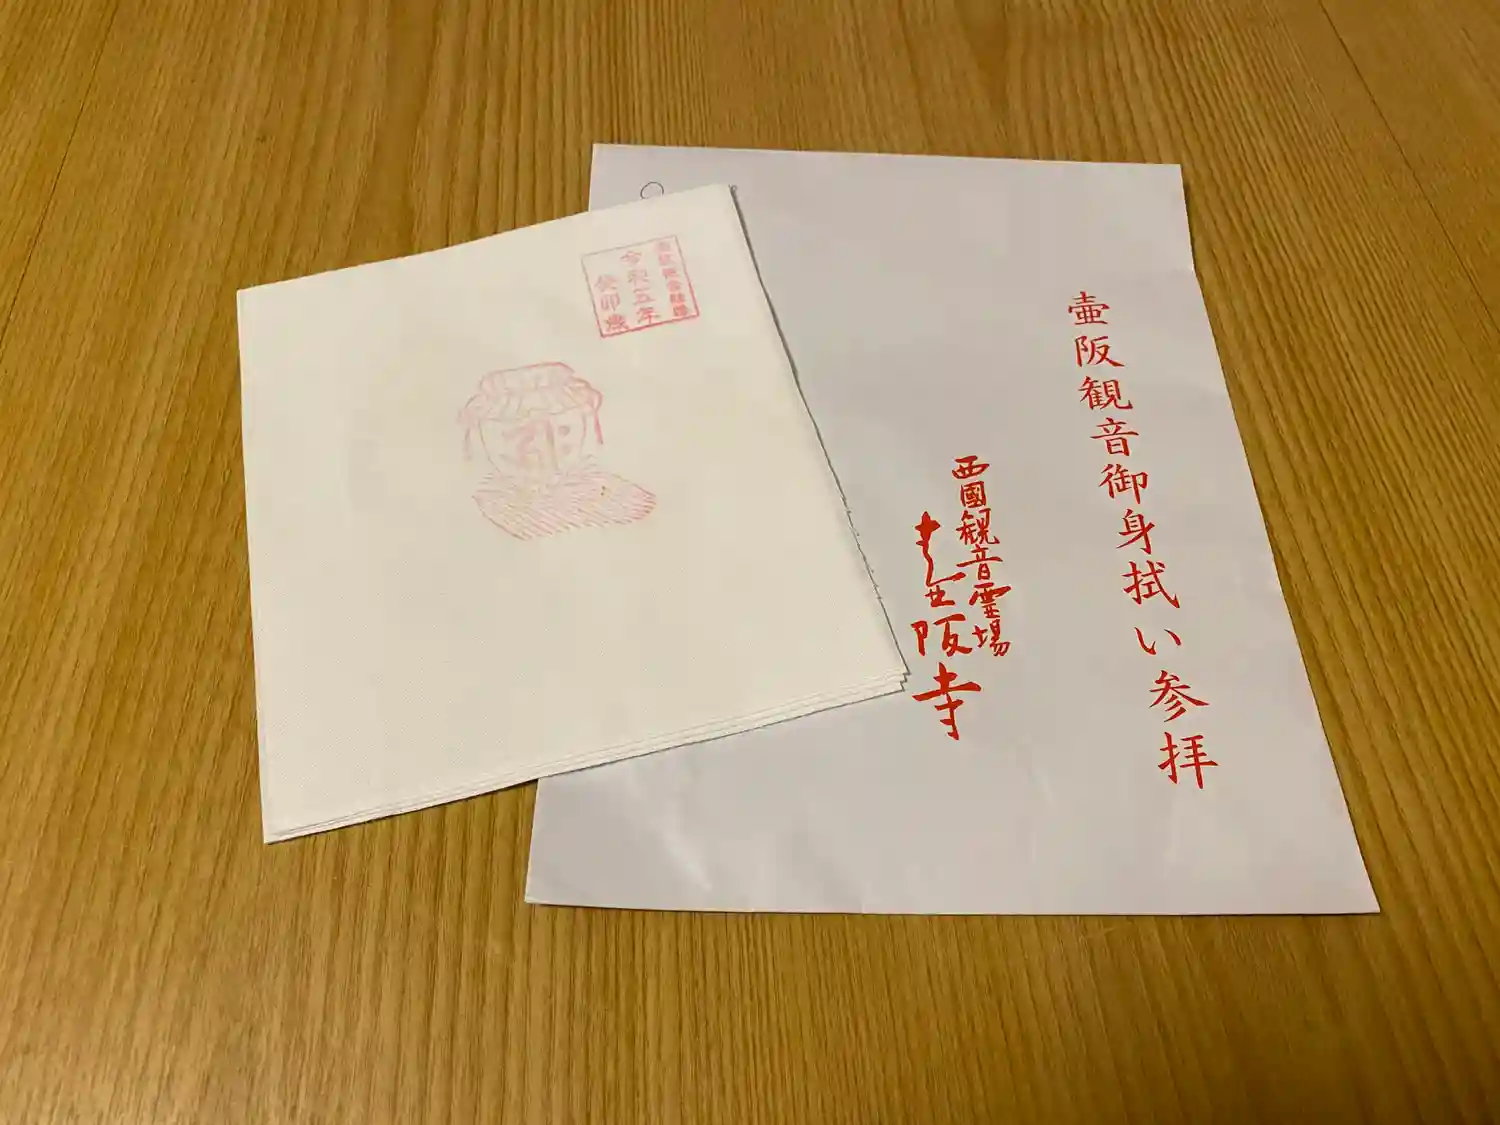 壷阪観音御身拭い参拝
西國観音霊場
壷阪寺
令和五年
癸卯歳